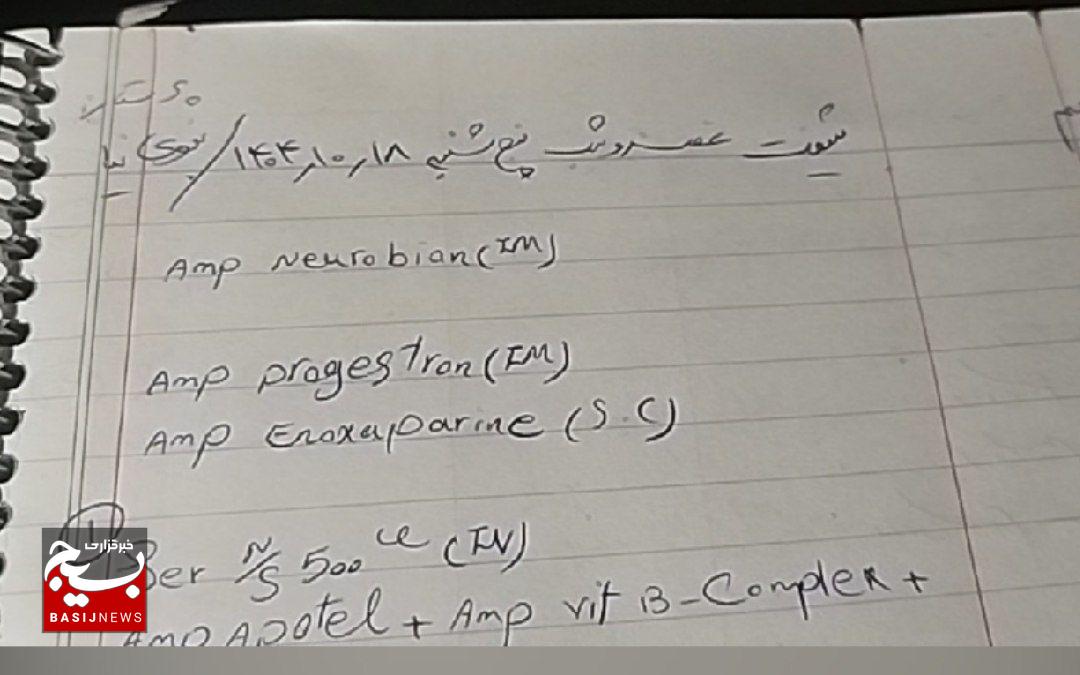 شیفت عصر و شب پنج شنبه ۱۴۰۴٫۱۰٫۱۸ /
Amp Neurobian (IM)
Amp progestron (IM)
Amp Enoxaparine (S.C)
Ser N/S 500 cc (IV)
Amp Apotel + Amp vit B-Complex +
خبرگزاری
بسیج
BASIJNEWS